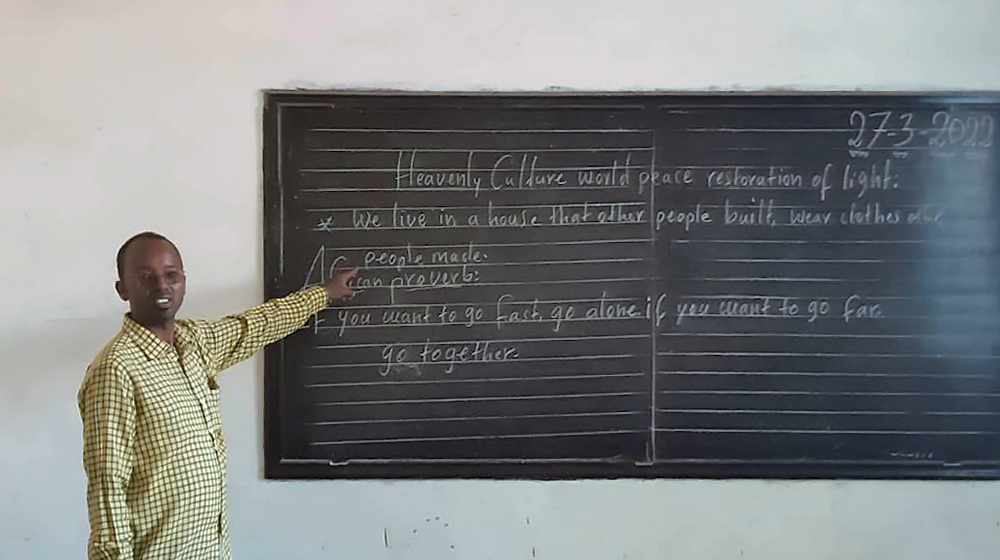 27-3-2022
Heavenly Culture world peace restoration of light:
* We live in a house that other people built, wear clothes other
people made.
can proverb:
If you want to go fast, go alone if you want to go far.
go together.